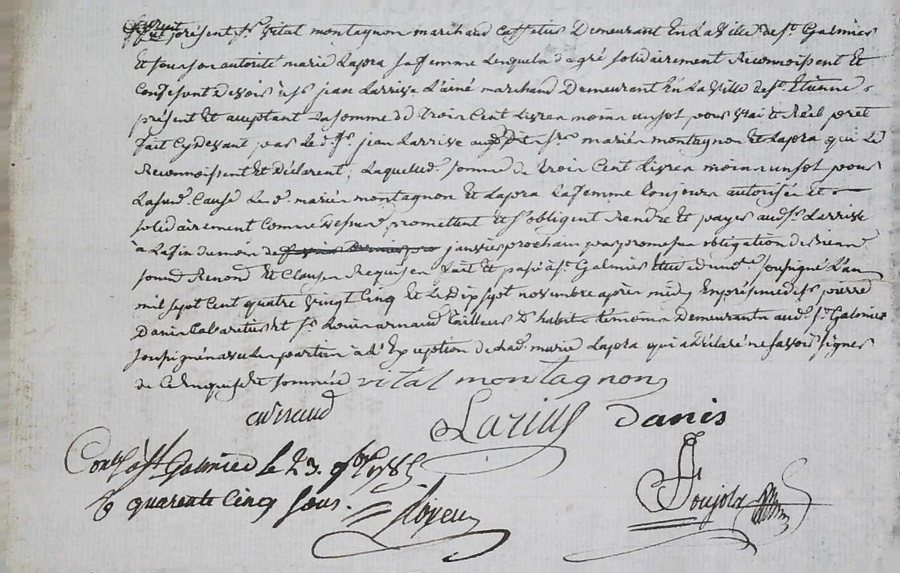 fut présent sr vital montagnon marchand Caffetier Demeurant En La ville de st Galmier
Et sous son autorité marie Lapra sa femme Lesquels de gré solidairement Reconnoissent Et
Confessent Devoir à sr jean Larrive L'ainé marchand Demeurant En La ville de st Etienne
présent Et acceptant La somme de Trois Cent Livres moins un sol pour vrai et Réel prêt
fait Cy devant par Le d. sr jean Larrive auxdits mariés montagnon Et Lapra qui Le
Reconnoissent Et Déclarent, Laquelle somme de Trois Cent Livres moins un sol pour
La susd. Cause Les d. mariés montagnon Et Lapra La femme toujours autorisée Et
solidairement Comme dessus promettent Et s'obligent Rendre Et payer aud. sr Larrive
à La fin du mois de janvier prochain par promesse obligation de Biens
soumis Renon. Et Clauses Requises fait Et passé à st Galmier Etude du no.re soussigné L'an
mil sept Cent quatre vingt Cinq Et Le Dix sept novembre après midy En présence de sr pierre
Danis Cabaretier Et sr Louis arnaud Tailleur D'habits témoins Demeurants aud. st Galmier
soussignés avec Les parties à L'Exception de lad. marie Lapra qui a déclaré ne savoir signer
de Ce Enquise Et sommée vital montagnon
arnaud Larive danis
Conlé à st Galmier le 23. 9bre 1785
quarente Cinq sous.